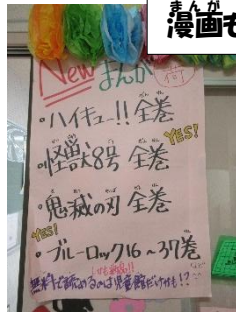 漫画も
まんが
New まんが
・ハイキュー!! 全巻
YES!
・怪獣8号 全巻
・鬼滅の刃 全巻
YES!
・ブルーロック16～37巻
無料で読めるのは児童館だけかも!?